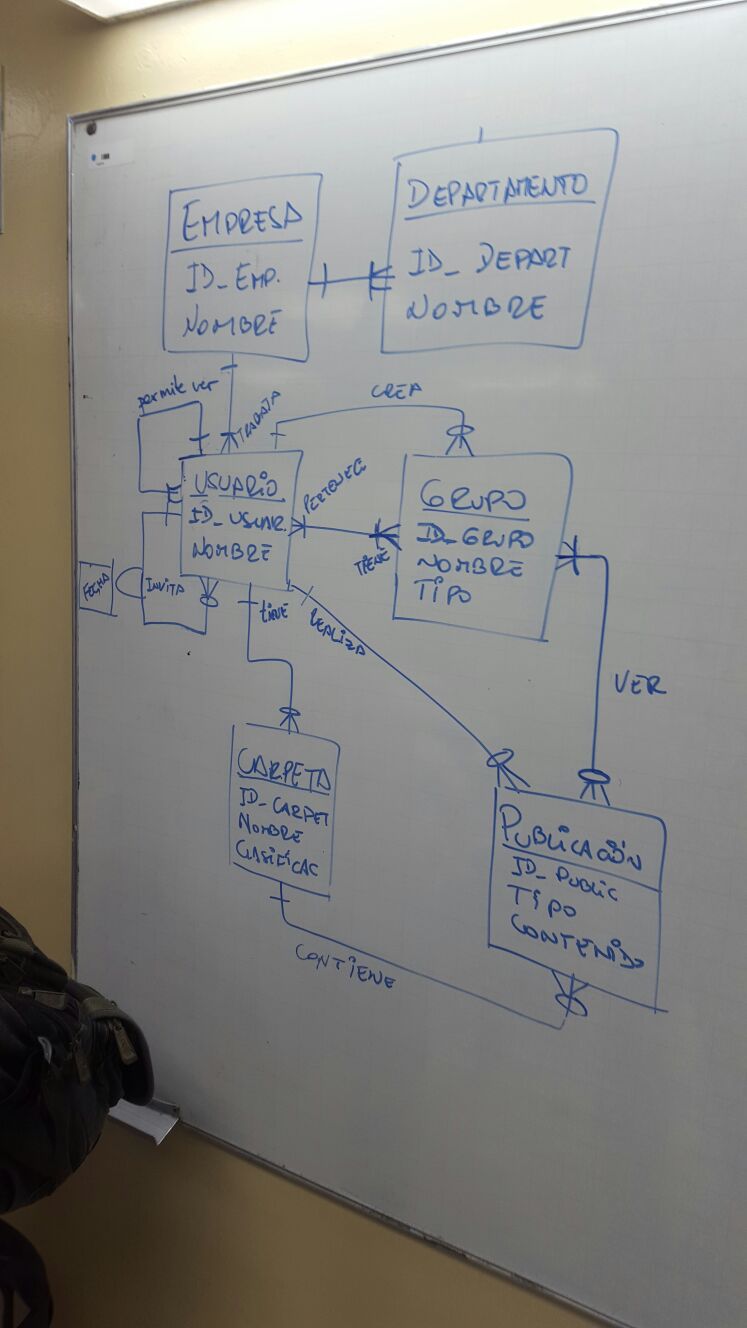 EMPRESA
ID_EMP.
NOMBRE
DEPARTAMENTO
ID_DEPART
NOMBRE
permite ver
TRABAJA
CREA
USUARIO
ID_USUAR.
NOMBRE
PERTENECE
TIENE
GRUPO
ID_GRUPO
NOMBRE
TIPO
FECHA
INVITA
tiene
REALIZA
VER
CARPETA
ID_CARPET
NOMBRE
CLASIFICAC
PUBLICACIÓN
ID_PUBLIC
TIPO
CONTENIDO
CONTIENE